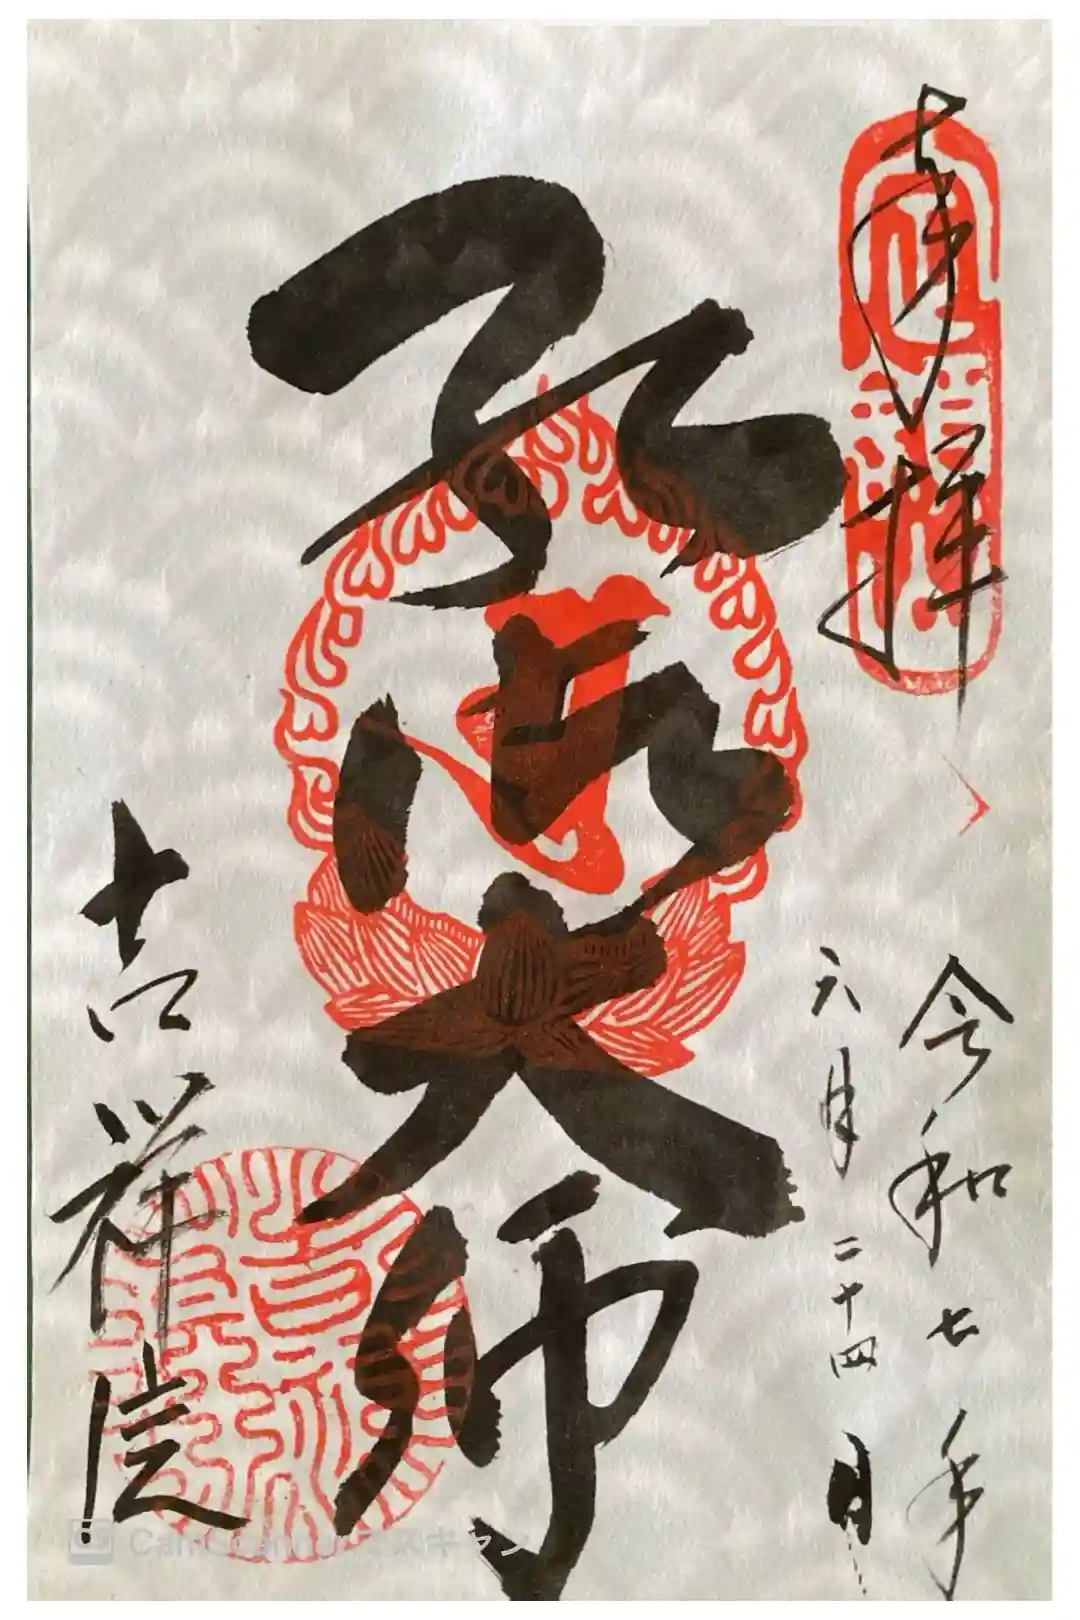 奉拝
令和七年
六月二十四日
弘法大師
吉祥院
CamScanner でスキャン